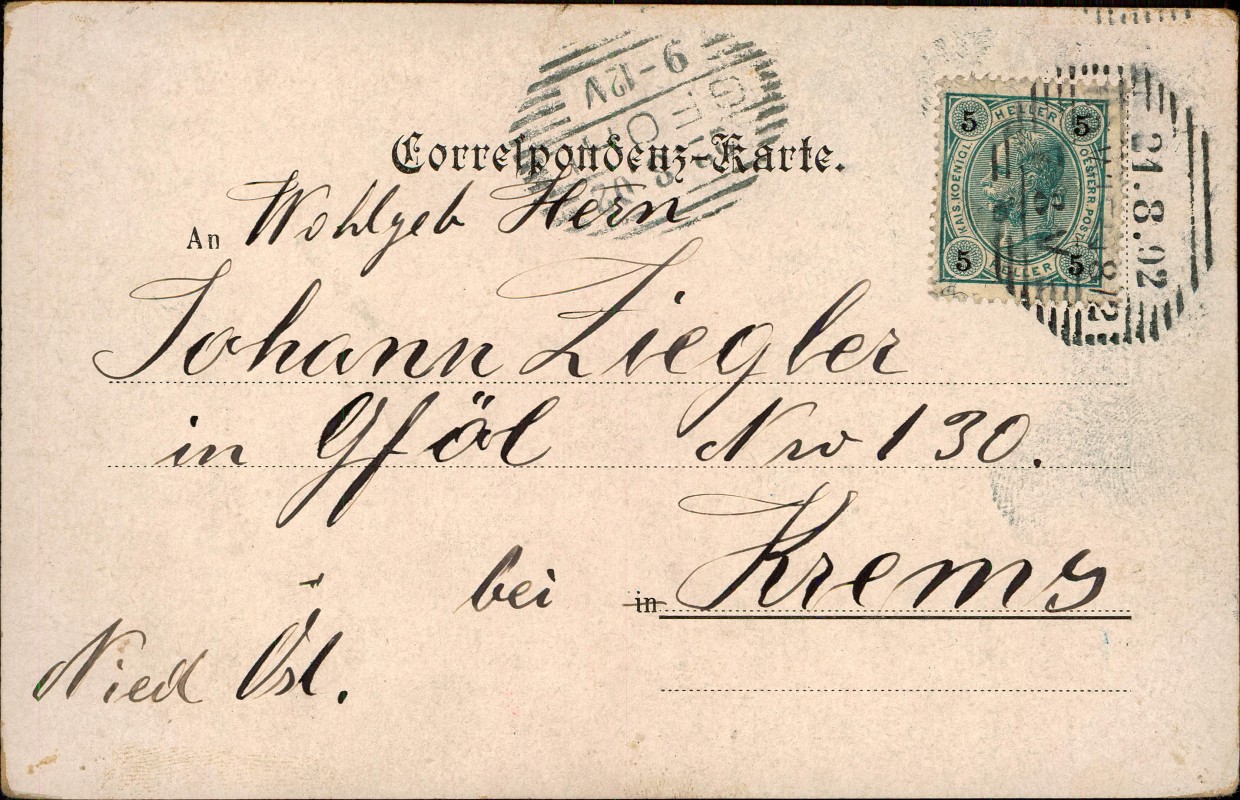 9-12V
Correspondenz-Karte.
An Wohlgeb Herrn
Johann Ziegler
in Gföl Nro 130.
bei in Krems
Nied Öst.
5 HELLER 5
KAIS. KOENIGL. OESTERR. POST
5 HELLER 5
21.8.02